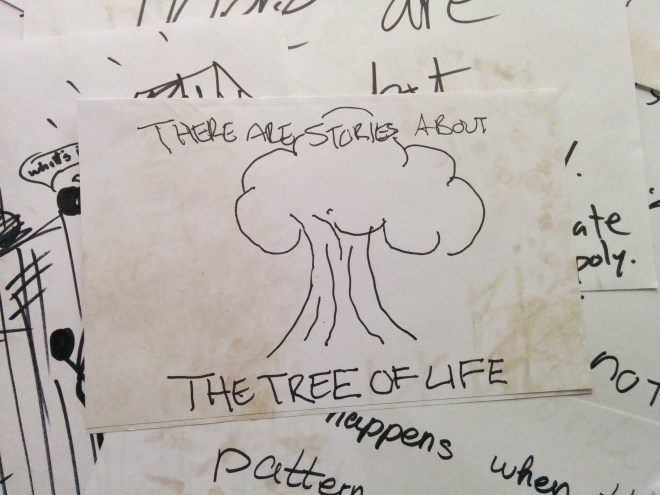 are
THERE ARE STORIES ABOUT
ate
poly.
THE TREE OF LIFE
not
happens when
pattern